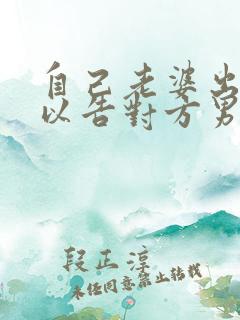 自己老婆出
以告對方男
段正淳
未經同意禁止轉載